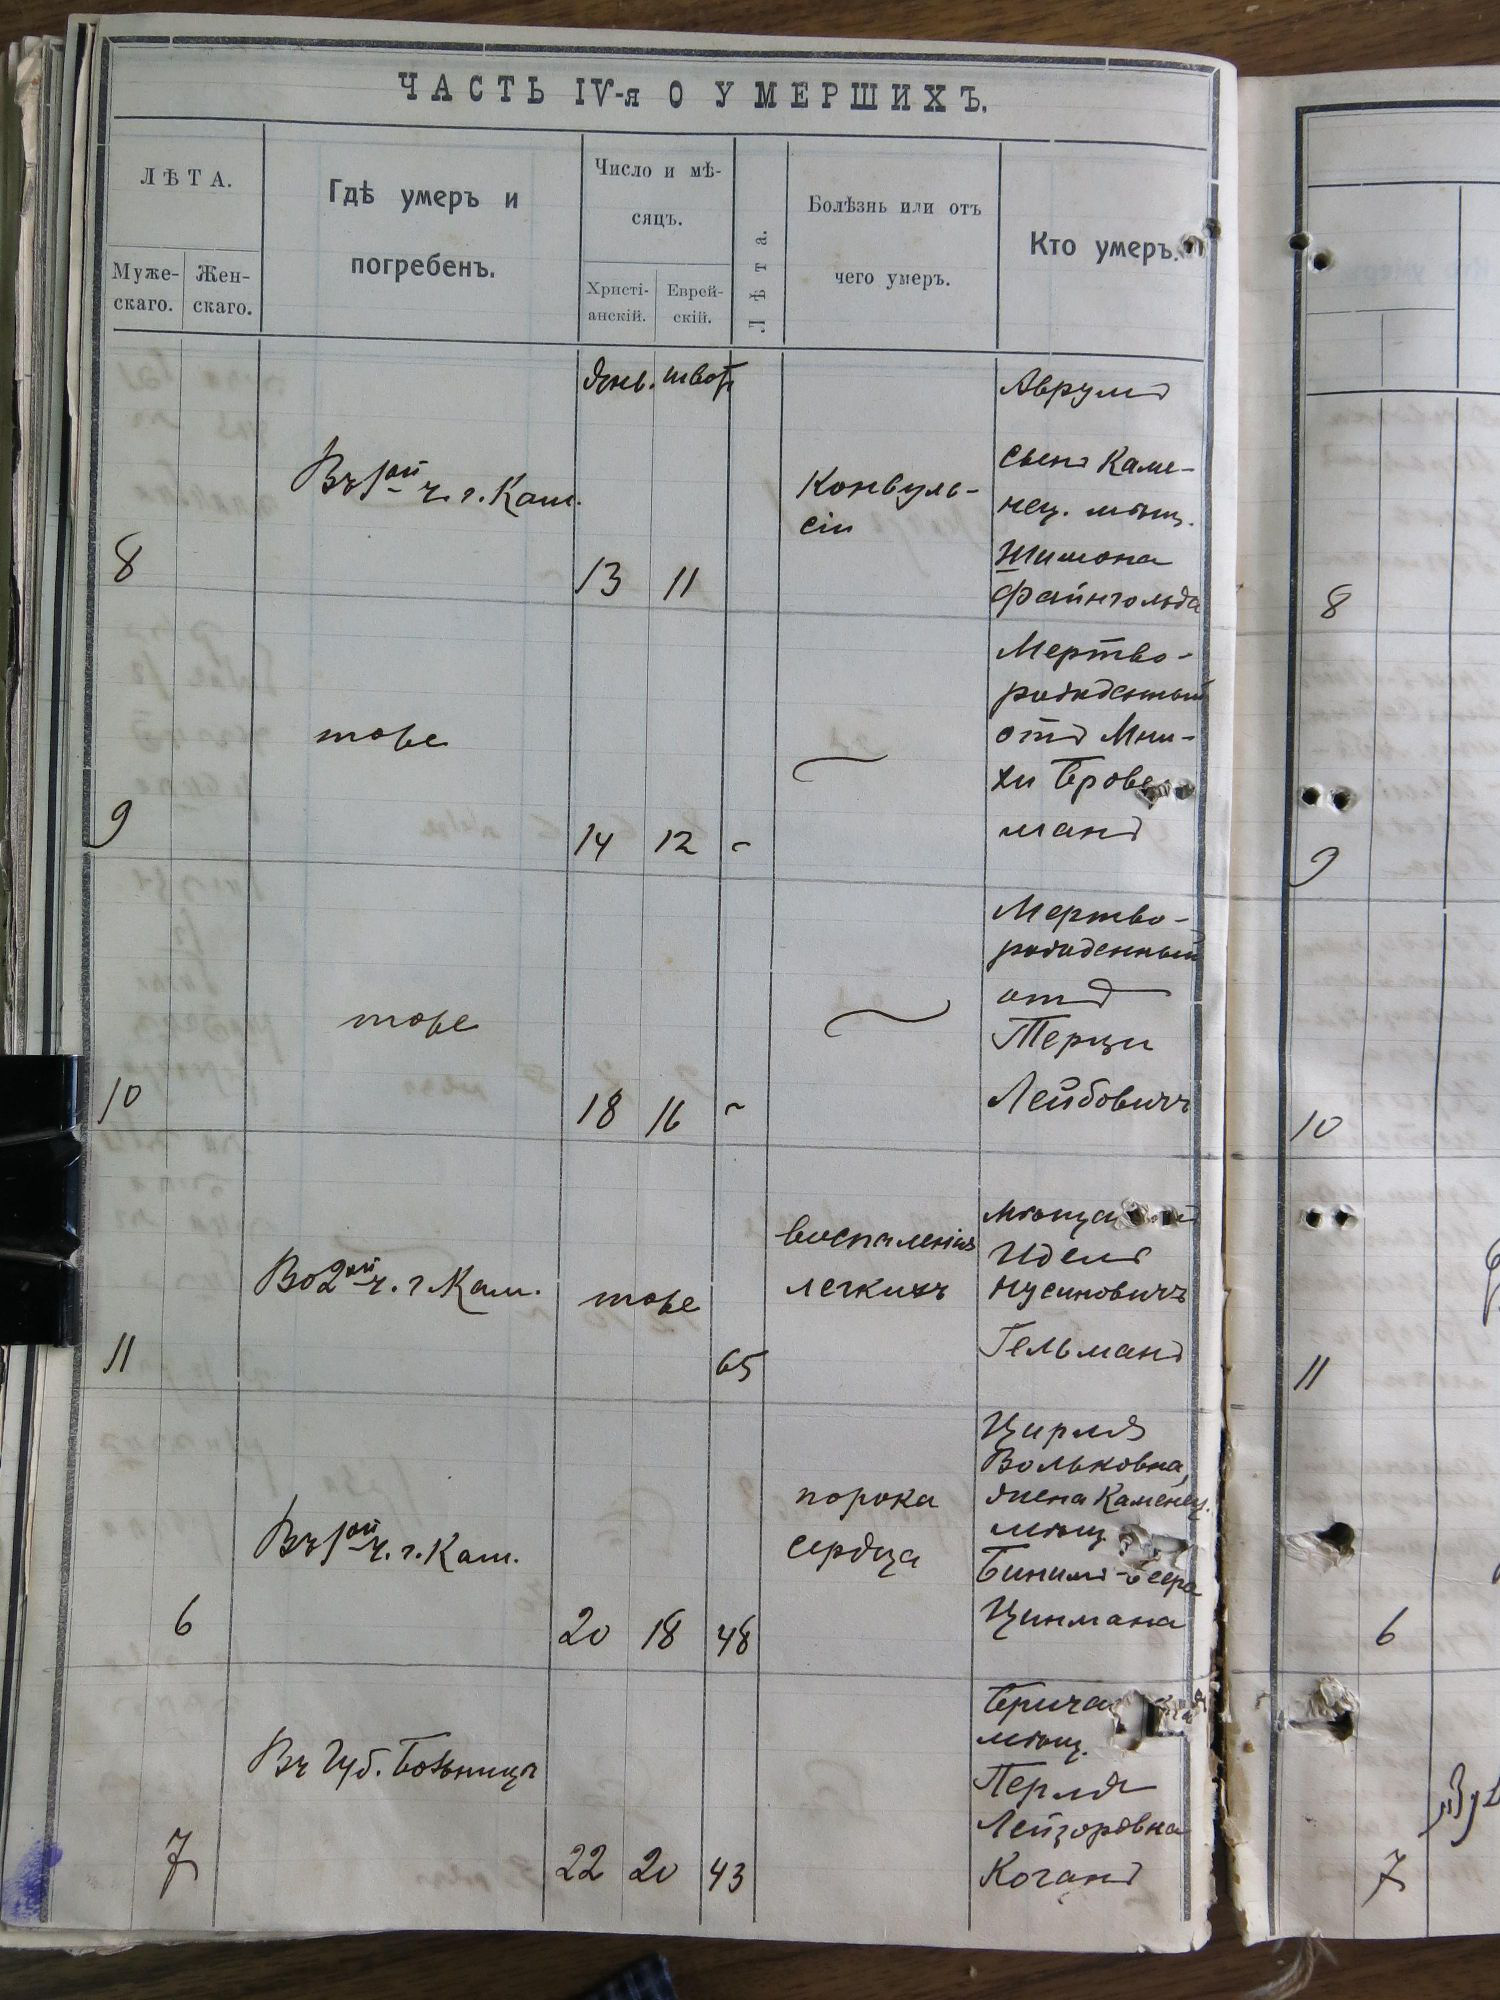 ЧАСТЬ IV-я О УМЕРШИХЪ.
ЛѢТА.
Муже-
скаго.
Жен-
скаго.
Гдѣ умеръ и
погребенъ.
Число и мѣ-
сяцъ.
Христі-
анскій.
Еврей-
скій.
Лѣта.
Болѣзнь или отъ
чего умеръ.
Кто умеръ.
Янв. швот
8
Въ 1ой ч. г. Кам.
13 11
Конвуль-
сіи
Аврумъ
сынъ Каме-
нец. мѣщ.
Шимона
Файнгольда
8
9
тоже
14 12 -
Мертво-
рожденный
отъ
манъ
9
10
тоже
18 16 -
Мертво-
рожденный
отъ
Терци
Лейбовичъ
10
11
Во 2ой ч. г. Кам.
тоже
65
воспаленія
легкихъ
Идель
Нусиновичъ
Гельманъ
11
6
Въ 1ой ч. г. Кам.
20 18 48
порока
сердца
Цирля
Вольковна,
жена Каменец.
мѣщ
Бинимъ-Беера
Цинмана
6
7
Въ Губ. Больницѣ
22 20 43
мѣщ.
Перля
Лейзоровна
Коганъ
7